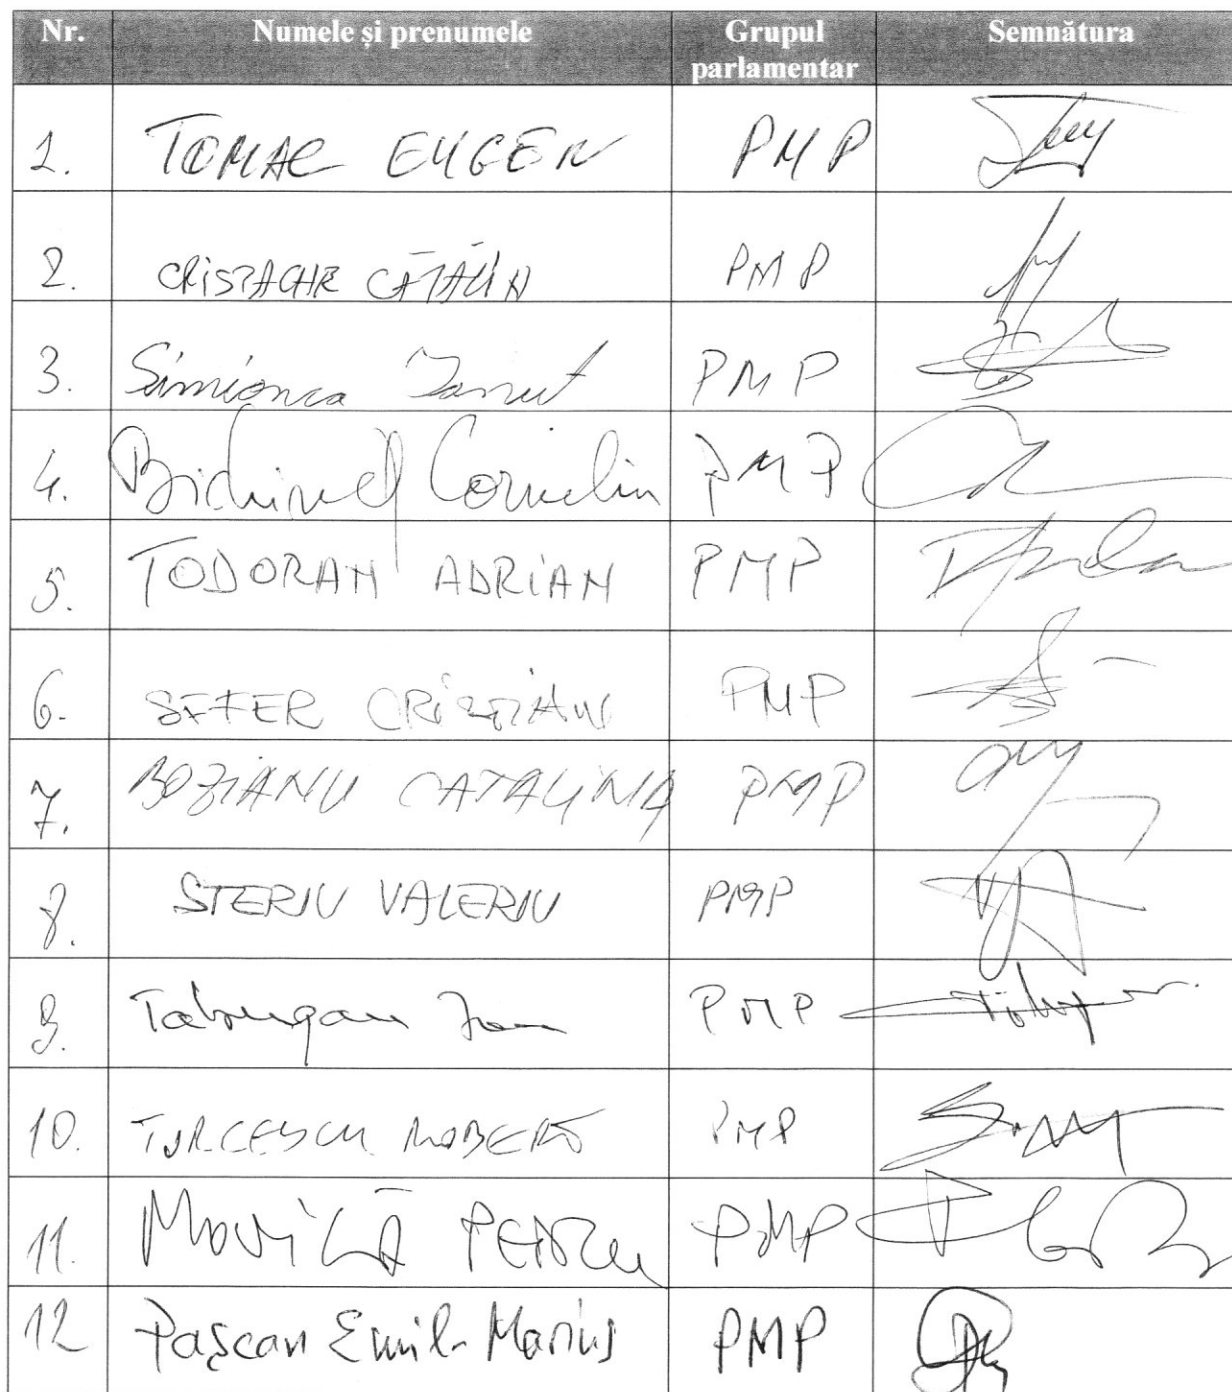 Nr. Numele și prenumele Grupul parlamentar Semnătura
1. TOMAC EUGEN PMP
2. CRISTACHE CĂTĂLIN PMP
3. Simionca Ionut PMP
4. Bichinet Corneliu PMP
5. TODORAN ADRIAN PMP
6. SEFER CRISTIAN PMP
7. BOZIANU CATALINA PMP
8. STERIU VALERIU PMP
9. Tabugan Ion PMP
10. TURCESCU ROBERT PMP
11. MOVILĂ PETRU PMP
12 Pașcan Emil-Marius PMP